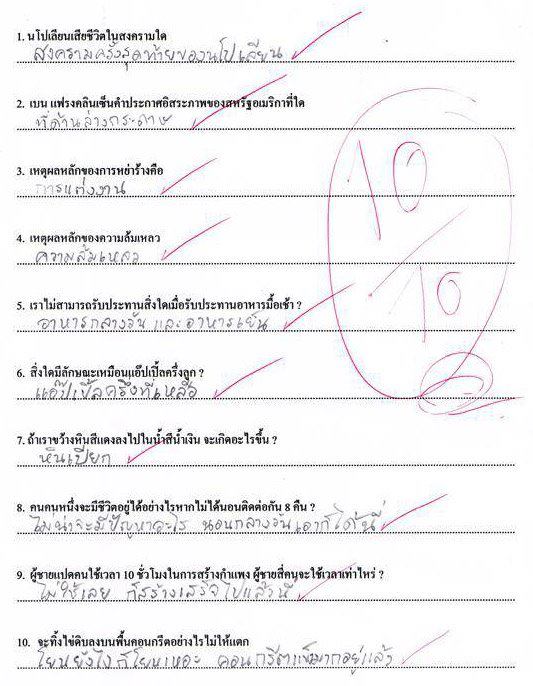 1. นโปเลียนเสียชีวิตในสงครามใด
สงครามครั้งสุดท้ายของนโปเลียน
2. เบน แฟรงคลินเซ็นคำประกาศอิสระภาพของสหรัฐอเมริกาที่ใด
ที่ด้านล่างกระดาษ
3. เหตุผลหลักของการหย่าร้างคือ
การแต่งงาน
4. เหตุผลหลักของความล้มเหลว
ความล้มเหลว
5. เราไม่สามารถรับประทานสิ่งใดเมื่อรับประทานอาหารมื้อเช้า ?
อาหารกลางวัน และอาหารเย็น
6. สิ่งใดมีลักษณะเหมือนแอ๊ปเปิ้ลครึ่งลูก ?
แอ๊ปเปิ้ลครึ่งที่เหลือ
7. ถ้าเราขว้างหินสีแดงลงไปในน้ำสีน้ำเงิน จะเกิดอะไรขึ้น ?
หินเปียก
8. คนคนหนึ่งจะมีชีวิตอยู่ได้อย่างไรหากไม่ได้นอนติดต่อกัน 8 คืน ?
ไม่น่าจะมีปัญหาอะไร นอนกลางวันเอาก็ได้นี่
9. ผู้ชายแปดคนใช้เวลา 10 ชั่วโมงในการสร้างกำแพง ผู้ชายสี่คนจะใช้เวลาเท่าไหร่ ?
ไม่ใช้เลย ก็สร้างเสร็จไปแล้วนี่
10. จะทิ้งไข่ดิบลงบนพื้นคอนกรีตอย่างไรไม่ให้แตก
โยนยังไงก็โยนเหอะ คอนกรีตแข็งมากอยู่แล้ว
10/10